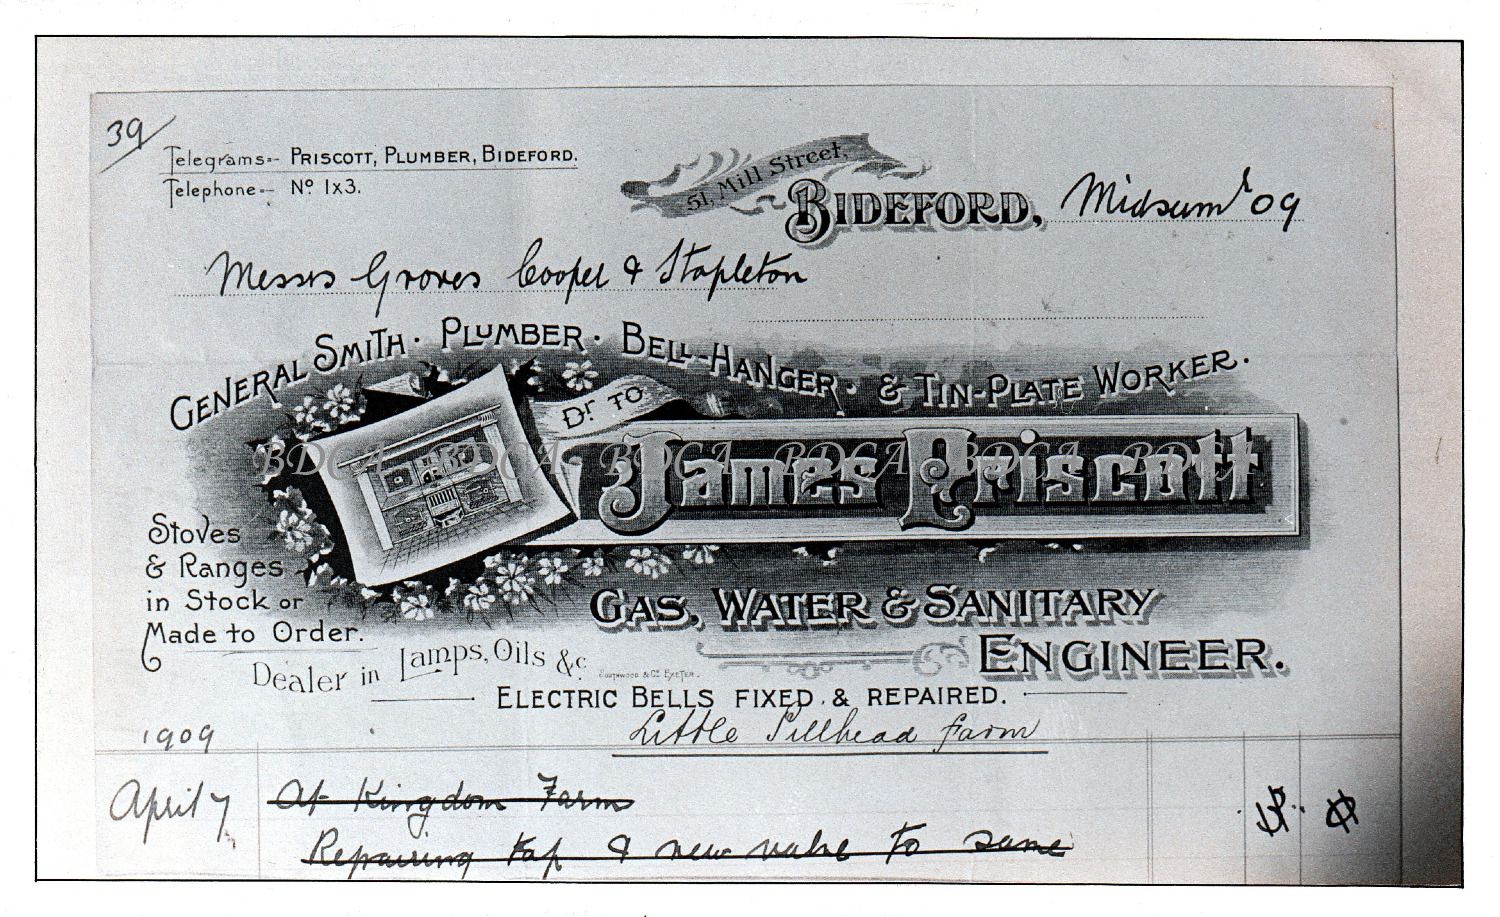 39/
Telegrams:- PRISCOTT, PLUMBER, BIDEFORD.
Telephone:- No 1x3.
51, Mill Street,
BIDEFORD, Midsumr 09
Messrs Groves Cooper & Stapleton
GENERAL SMITH · PLUMBER · BELL-HANGER · & TIN-PLATE WORKER ·
Dr TO
James Priscott
BDCA BDCA BDCA BDCA BDCA BDCA
Stoves
& Ranges
in Stock or
Made to Order.
GAS, WATER & SANITARY
ENGINEER.
Dealer in Lamps, Oils &c
SOUTHWOOD & Co EXETER.
ELECTRIC BELLS FIXED & REPAIRED.
1909 Little Pillhead farm
April 7 At Kingdom Farm
Repairing tap & new valve to same